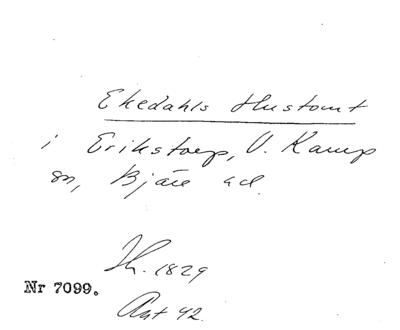 Ekedahls Hustomt
i Erikstorp, V. Karup
sn, Bjäre hd.
Th. 1829
Nr 7099.
Ant 42.